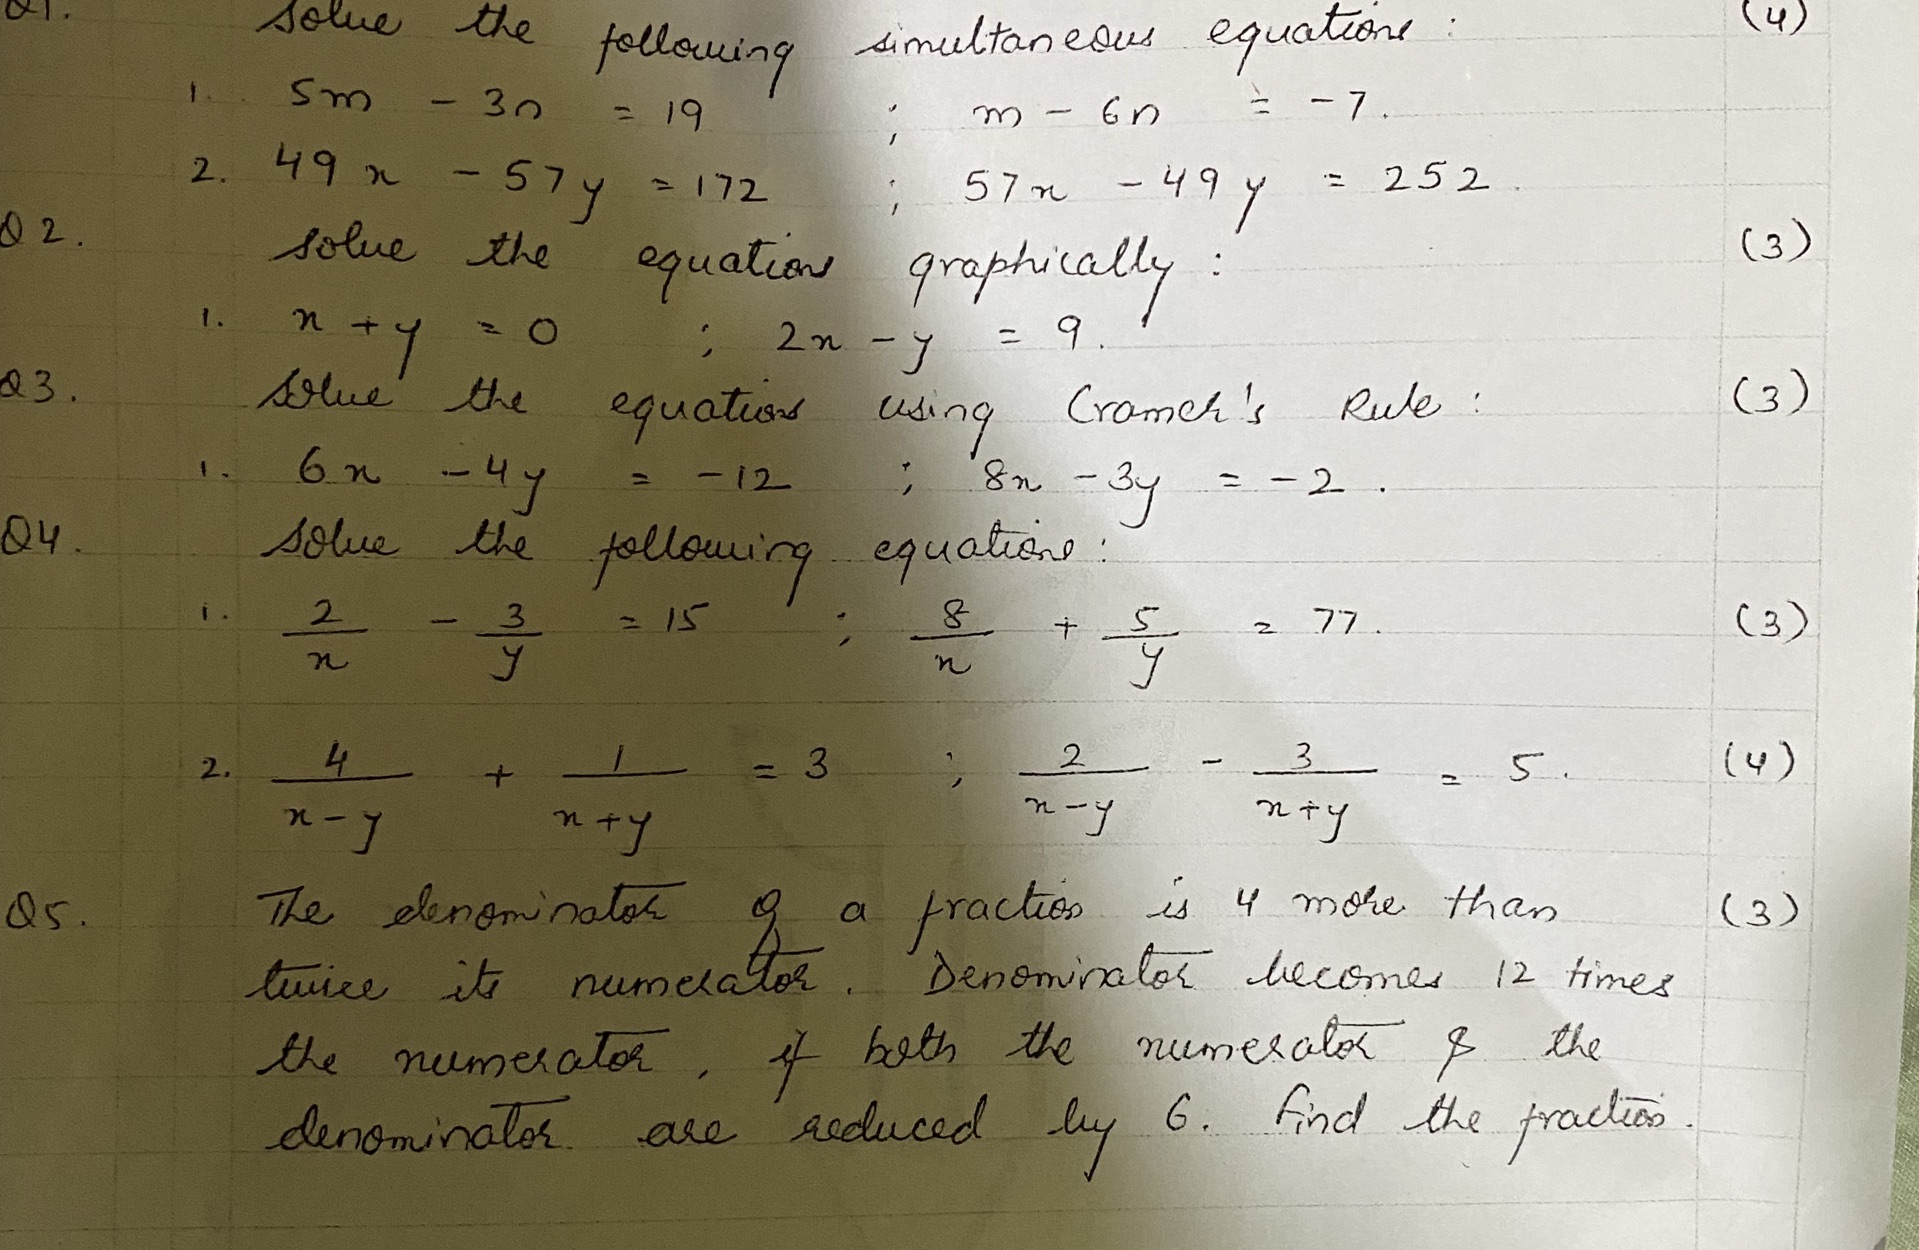 Q1. Solve the following simultaneous equations : (4)
1. 5m - 3n = 19 ; m - 6n = -7.
2. 49x - 57y = 172 ; 57x - 49y = 252.
Q2. Solve the equations graphically : (3)
1. x + y = 0 ; 2x - y = 9.
Q3. Solve the equations using Cramer's Rule : (3)
1. 6x - 4y = -12 ; 8x - 3y = -2.
Q4. Solve the following equations :
1. 2/x - 3/y = 15 ; 8/x + 5/y = 77. (3)
2. 4/(x-y) + 1/(x+y) = 3 ; 2/(x-y) - 3/(x+y) = 5. (4)
Q5. The denominator of a fraction is 4 more than (3)
twice its numerator. Denominator becomes 12 times
the numerator, if both the numerator & the
denominator are reduced by 6. Find the fraction.